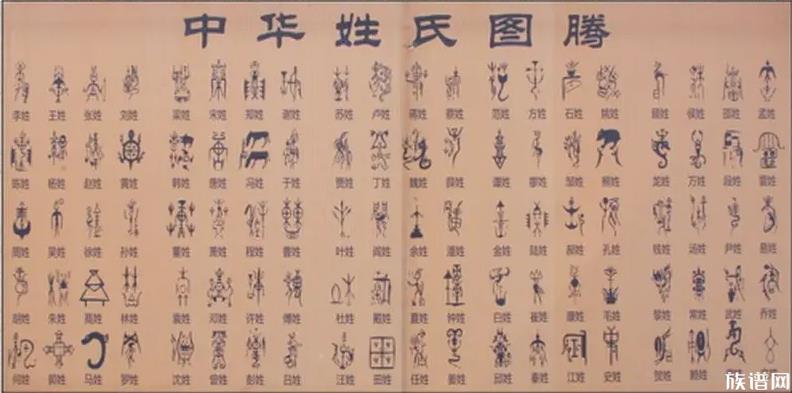 中华姓氏图腾
李姓 王姓 张姓 刘姓 梁姓 宋姓 郑姓 谢姓 苏姓 卢姓 蒋姓 蔡姓 范姓 方姓 石姓 姚姓 顾姓 侯姓 邵姓 孟姓
陈姓 杨姓 赵姓 黄姓 韩姓 唐姓 冯姓 于姓 贾姓 丁姓 魏姓 薛姓 谭姓 廖姓 邹姓 熊姓 龙姓 万姓 段姓 雷姓
周姓 吴姓 徐姓 孙姓 董姓 萧姓 程姓 曹姓 叶姓 阎姓 余姓 潘姓 金姓 陆姓 郝姓 孔姓 钱姓 汤姓 尹姓 易姓
胡姓 朱姓 高姓 林姓 袁姓 邓姓 许姓 傅姓 杜姓 戴姓 夏姓 钟姓 白姓 崔姓 康姓 毛姓 黎姓 常姓 武姓 乔姓
何姓 郭姓 马姓 罗姓 沈姓 曾姓 彭姓 吕姓 汪姓 田姓 任姓 姜姓 邱姓 秦姓 江姓 史姓 贺姓 赖姓
族谱网